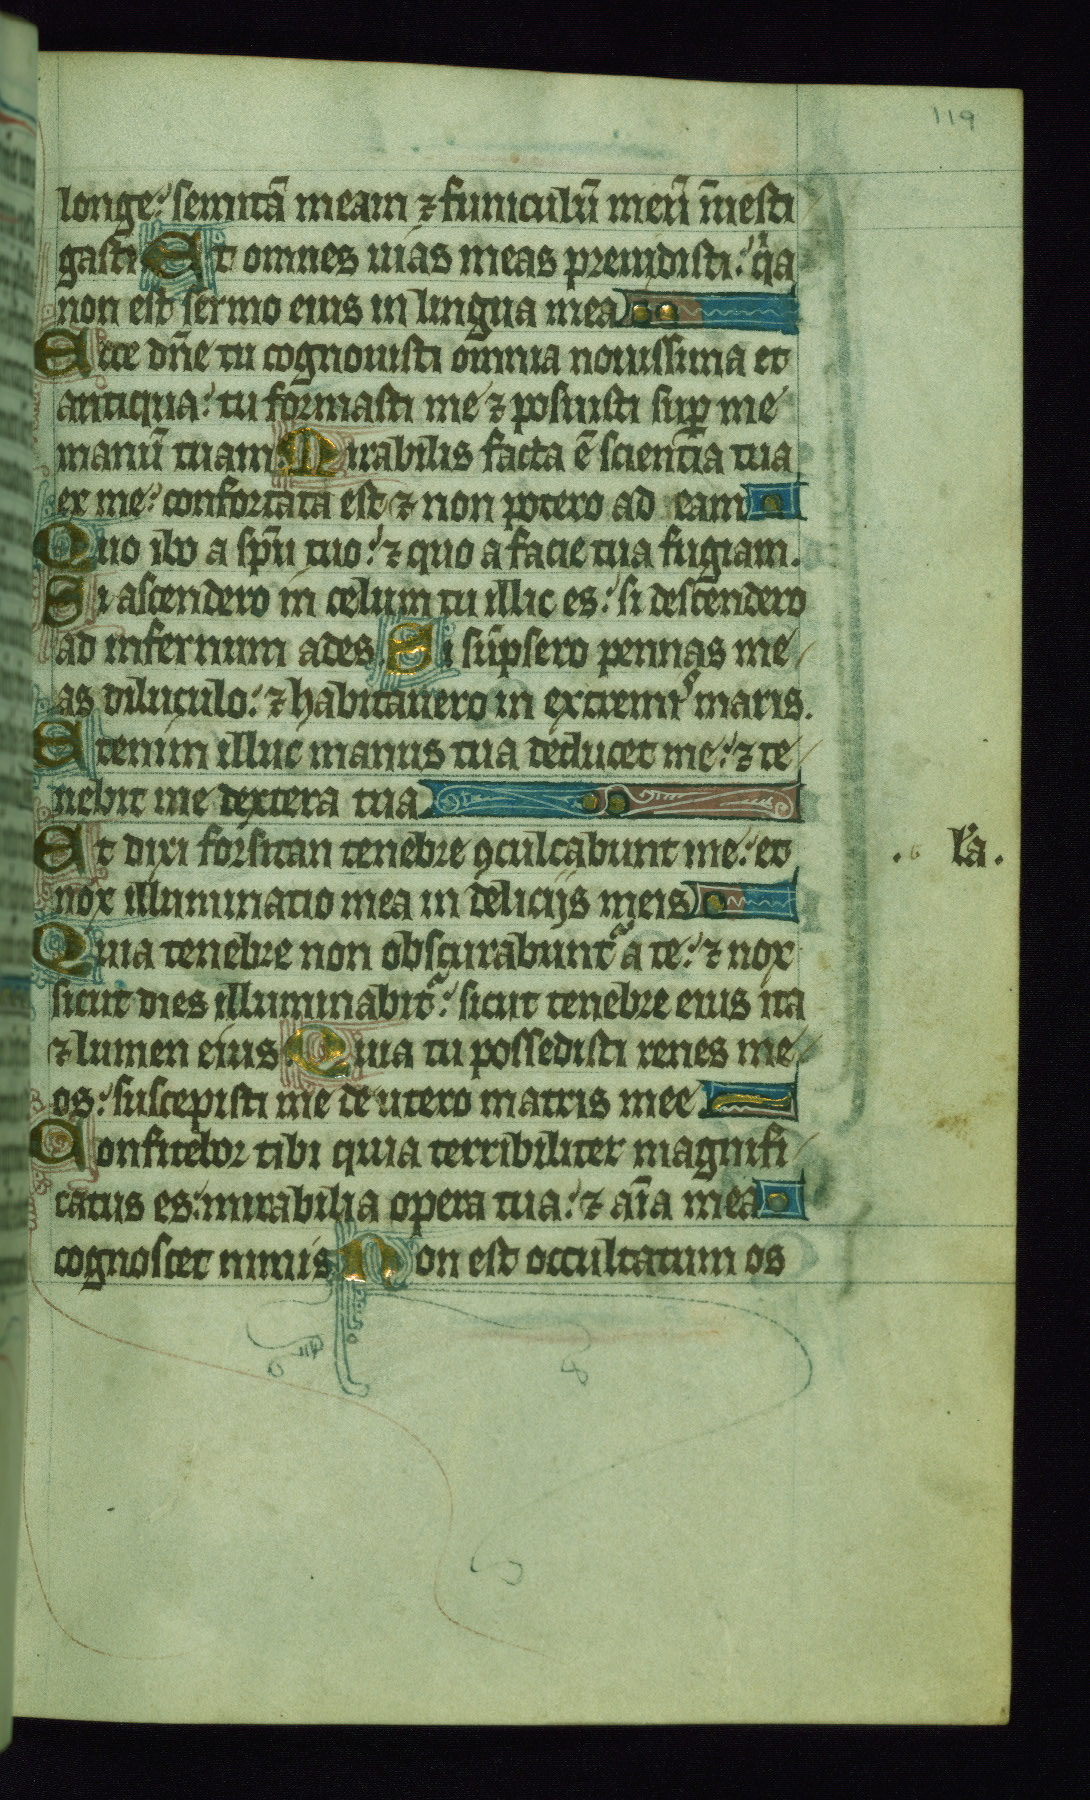 119
longe: semitā meam ⁊ funiculū meū īuesti
gasti Et omnes uias meas preuidisti: qⁱa
non est sermo eius in lingua mea
Ecce dñe tu cognouisti omnia nouissima et
antiqua: tu formasti me ⁊ posuisti suꝑ me
manū tuam Mirabilis facta ē scientia tua
ex me: confortata est ⁊ non potero ad eam
Quo ibo a spū tuo: ⁊ quo a facie tua fugiam.
Si ascendero in celum tu illic es: si descendero
ad infernum ades Si sūpsero pennas me
as diluculo: ⁊ habitauero in extremis maris.
Etenim illuc manus tua deducet me: ⁊ te
nebit me dextera tua
Et dixi forsitan tenebre ꝯculcabunt me: et
nox illuminatio mea in deliciis meis
Quia tenebre non obscurabunt᷑ a te: ⁊ nox
sicut dies illuminabit᷑: sicut tenebre eius ita
⁊ lumen eius Quia tu possedisti renes me
os: suscepisti me de utero matris mee
Confitebor tibi quia terribiliter magnifi
catus es: mirabilia opera tua: ⁊ aīa mea
cognoscet nimis Non est occultatum os